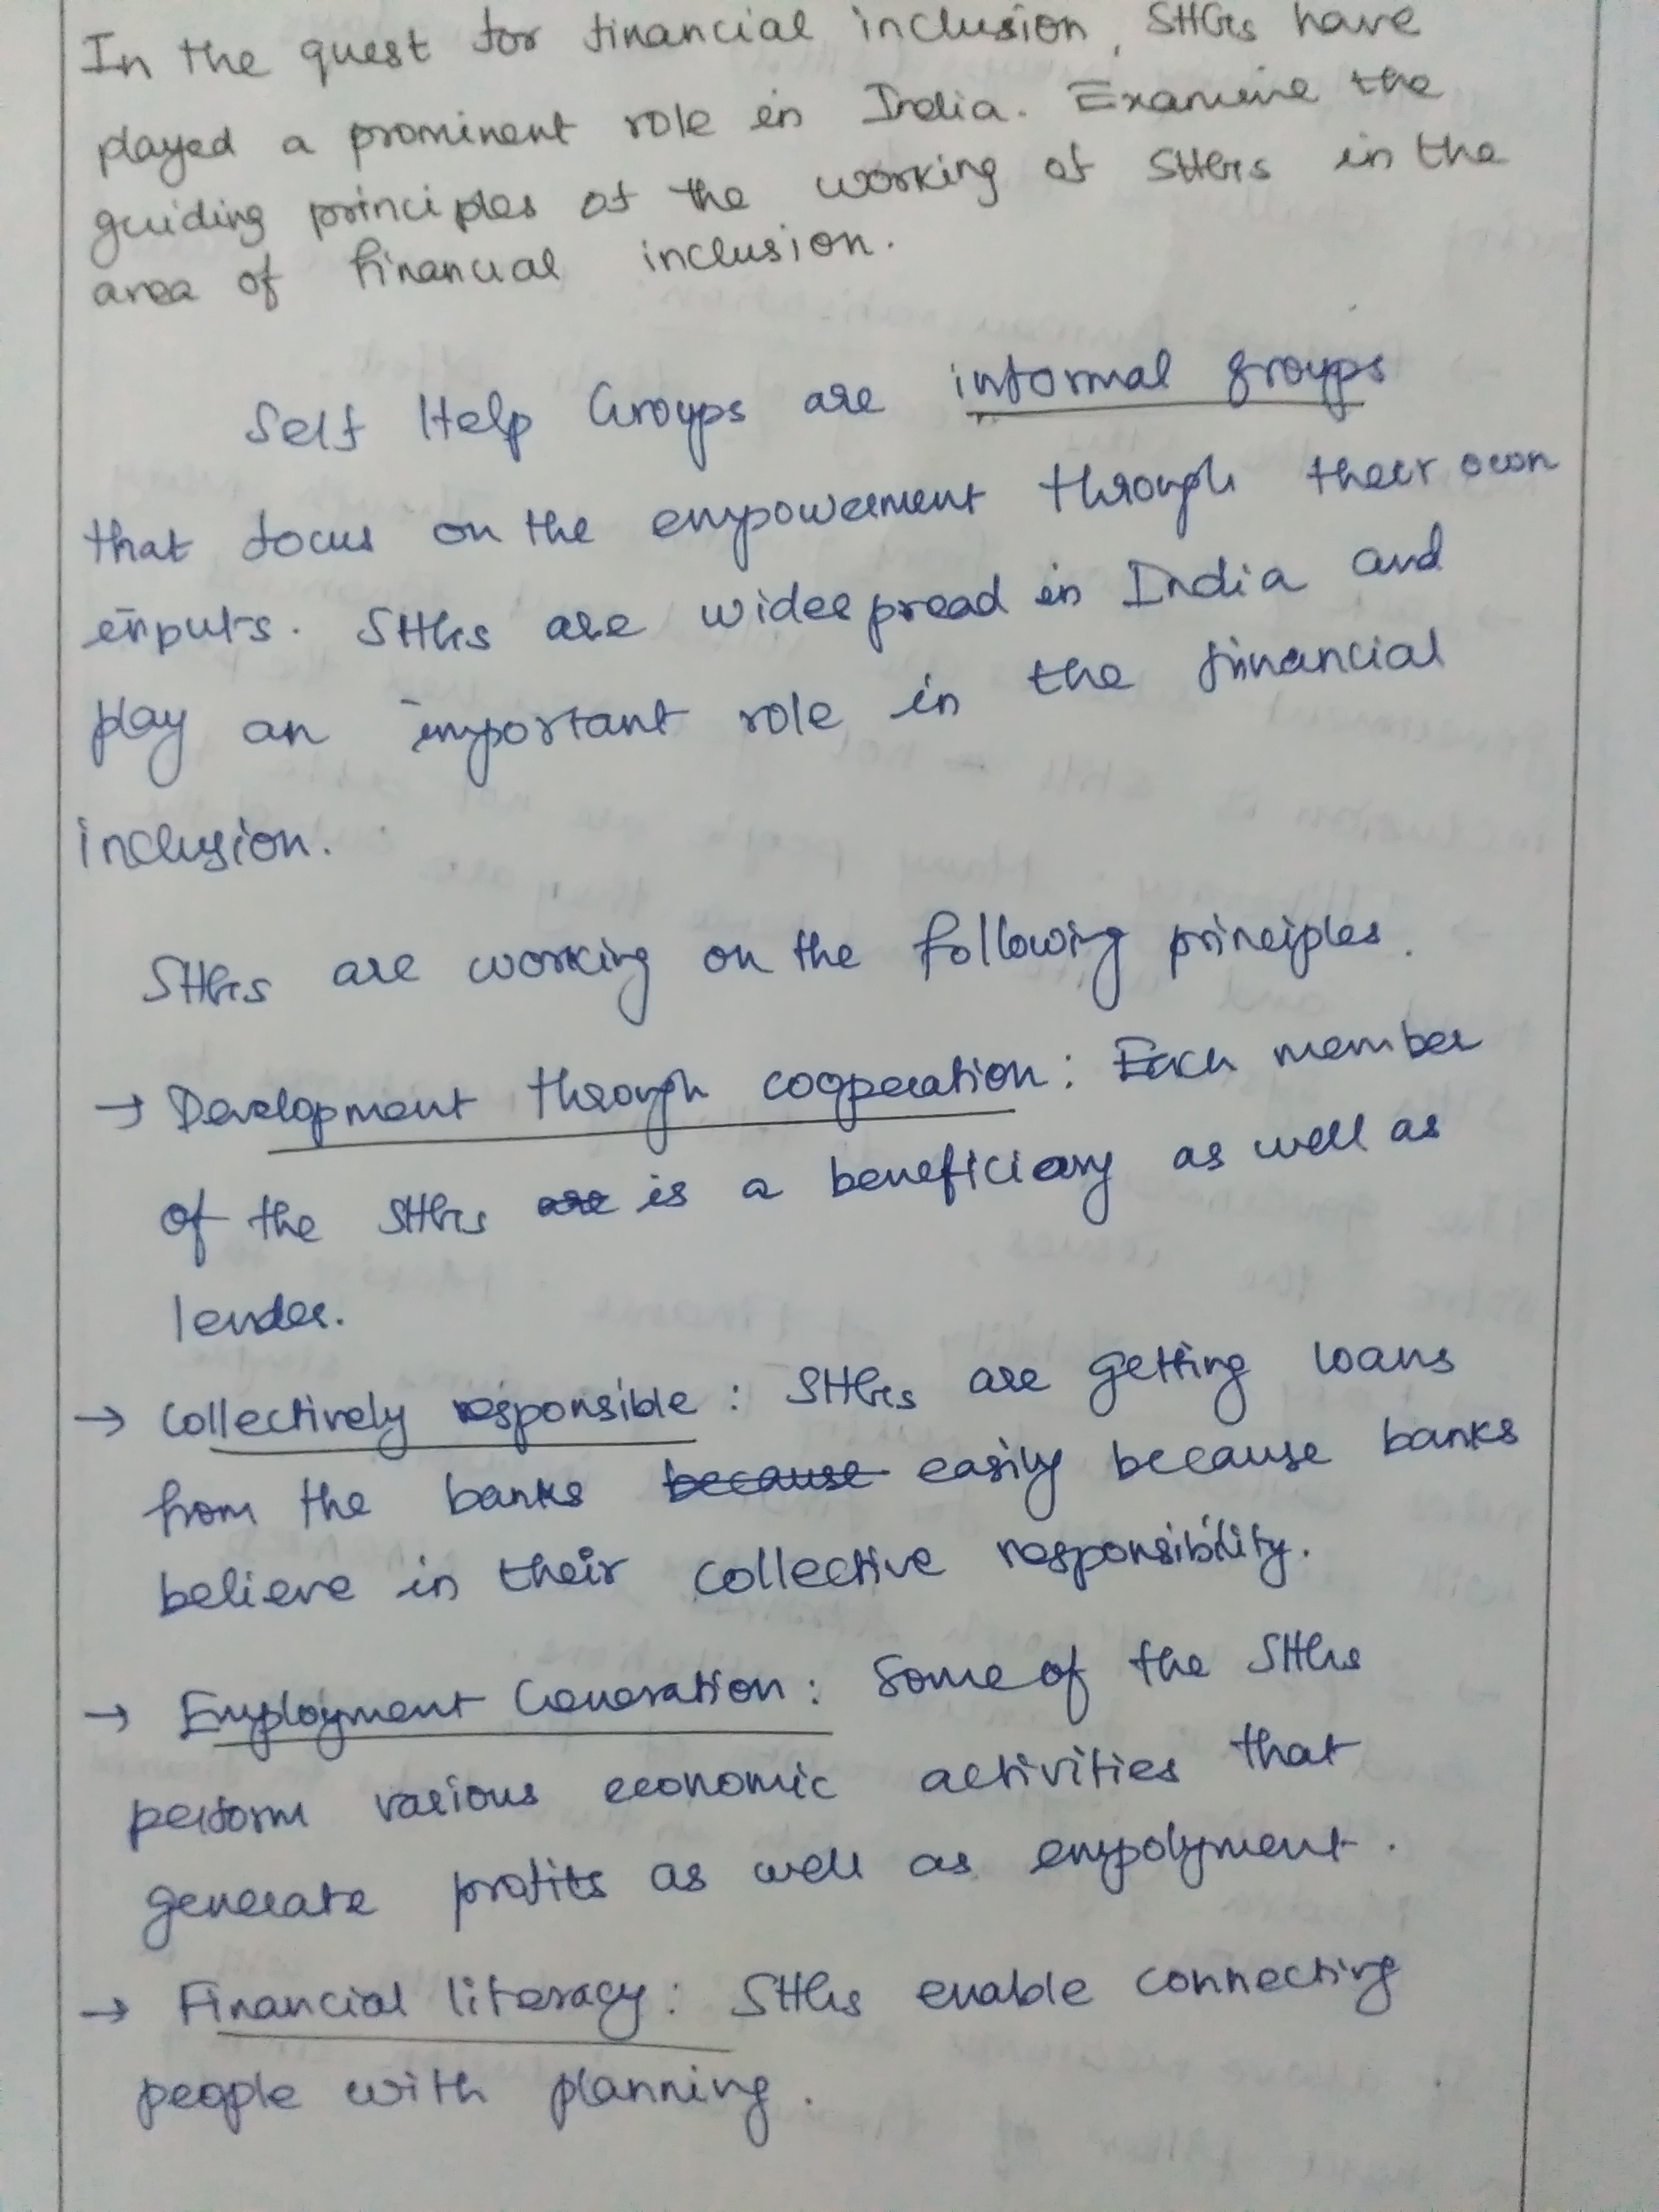 In the quest for financial inclusion, SHGs have
played a prominent role in India. Examine the
guiding principles of the working of SHGs in the
area of financial inclusion.
Self Help Groups are informal groups
that focus on the empowerment through their own
inputs. SHGs are widespread in India and
play an important role in the financial
inclusion.
SHGs are working on the following principles.
→ Development through cooperation: Each member
of the SHGs are is a beneficiary as well as
lender.
→ Collectively responsible: SHGs are getting loans
from the banks because easily because banks
believe in their collective responsibility.
→ Employment Generation: Some of the SHGs
perform various economic activities that
generate profits as well as empolyment.
→ Financial literacy: SHGs enable connecting
people with planning.